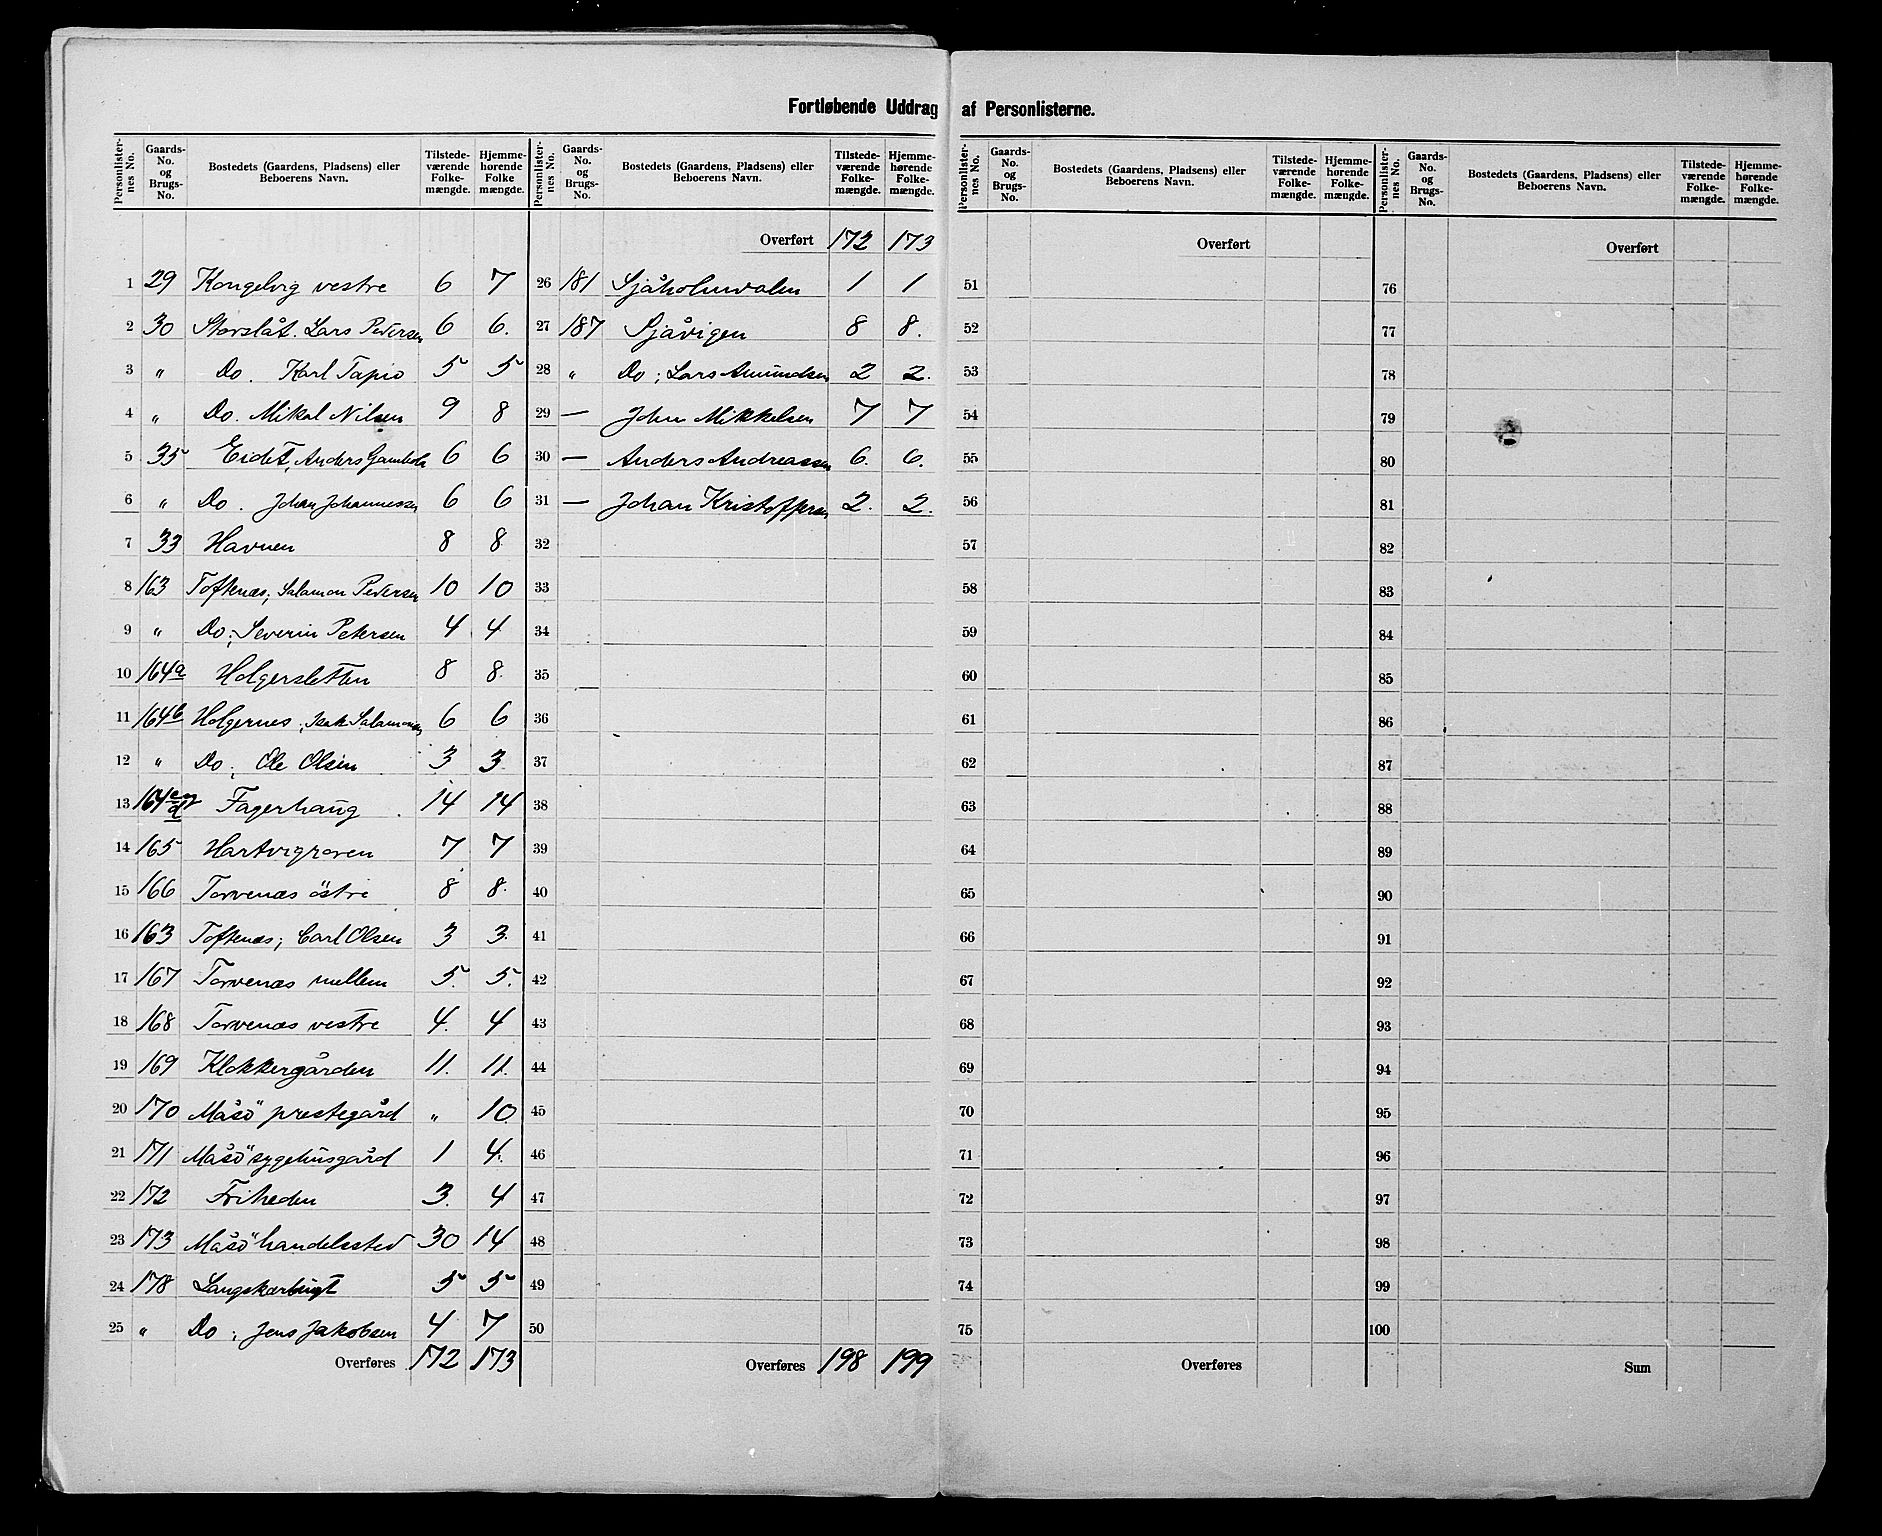 Fortløbende Uddrag af Personlisterne.
Personlister-nes No. | Gaards-No. og Brugs-No. | Bostedets (Gaardens, Pladsens) eller Beboerens Navn. | Tilstede-værende Folke-mængde. | Hjemme-hørende Folke mængde.
1 29 Kongelvig vestre 6 7
2 30 Storslåt. Lars Pedersen 6 6.
3 " Do. Karl Tapio 5 5
4 " Do. Mikal Nilsen 9 8
5 35 Eidet, Anders 6 6
6 " Do. Johan Johannessen 6 6
7 33 Havnen 8 8
8 163 Toftenæs; Salamon Pedersen 10 10
9 " Do; Severin Petersen 4 4
10 164a Holgersletten 8 8.
11 164b Holgernes; Isak Salamonsen 6 6
12 " Do; Ole Olsen 3 3
13 164 Fagerhaug 14 14
14 165 Hartvigroven 7 7
15 166 Torvenæs östre 8 8.
16 163 Toftenæs; Carl Olsen 3 3.
17 167 Torvenæs mellem 5. 5.
18 168 Torvenæs vestre 4. 4
19 169 Klokkergården 11. 11.
20 170 Måsö prestegård " 10
21 171 Måsö sygehusgård 1 4.
22 172 Friheden 3. 4
23 173 Måsö handelssted 30 14
24 178 Langskarbugt 5 5
25 " Do; Jens Jakobsen 4 7
Overføres 172 173
Personlister-nes No. | Gaards-No. og Brugs-No. | Bostedets (Gaardens, Pladsens) eller Beboerens Navn. | Tilstede-værende Folke-mængde. | Hjemme-hørende Folke-mængde.
Overført 172 173
26 181 Sjåholmvalen 1 1
27 187 Sjåvigen 8 8.
28 " Do; Lars Amundsen 2 2.
29 — John Mikkelsen 7 7
30 — Anders Andreassen 6. 6.
31 — Johan Kristoffersen 2. 2.
32
33
34
35
36
37
38
39
40
41
42
43
44
45
46
47
48
49
50
Overføres 198 199
Personlister-nes No. | Gaards-No. og Brugs-No. | Bostedets (Gaardens, Pladsens) eller Beboerens Navn. | Tilstede-værende Folke-mængde. | Hjemme-hørende Folke-mængde.
Overført
51
52
53
54
55
56
57
58
59
60
61
62
63
64
65
66
67
68
69
70
71
72
73
74
75
Overføres
Personlister-nes No. | Gaards-No. og Brugs-No. | Bostedets (Gaardens, Pladsens) eller Beboerens Navn. | Tilstede-værende Folke-mængde. | Hjemme-hørende Folke-mængde.
Overført
76
77
78
79
80
81
82
83
84
85
86
87
88
89
90
91
92
93
94
95
96
97
98
99
100
Sum